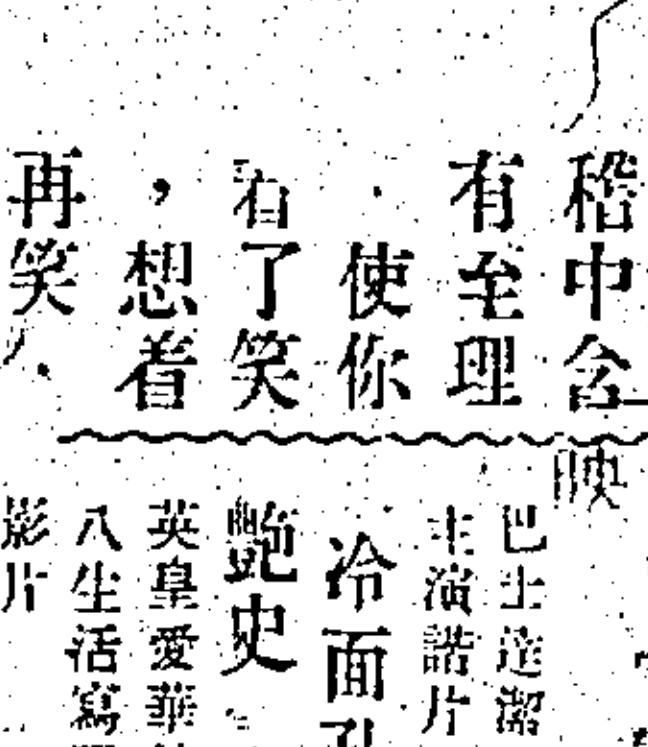 稽中含
有至理
使你
看了笑
，想着
再笑
映
巴士達潔
主演諧片
冷面孔
艶史
英皇愛華
八生活寫
影片